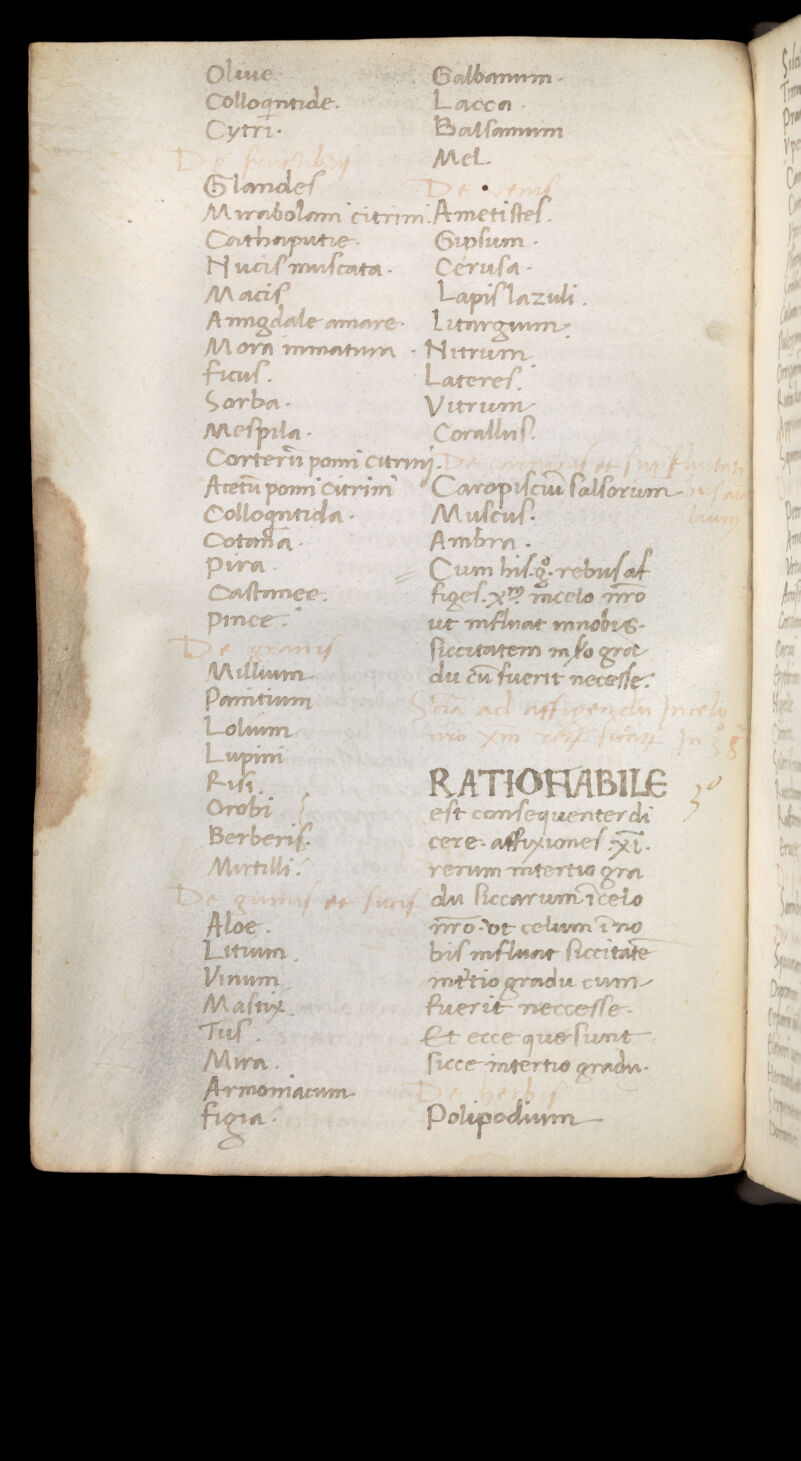 Oliue
Colloq̄ntide.
Cytri.
De fructibus
Glandes
Mirabolani citrini.
Cathaputie.
Nucis muscata.
Macis
Amigdale amare.
Mora inmatura.
ficus.
Sorba.
Mespila.
Corterū pomi citrinj.
Acetū pomi citrini
Colloqntida.
Cotana.
Pira.
Castanee.
pinee.
De granis
Millium
Panitium
Lolium
Lupini
Risi.
Orobi
Berberis.
Mirtilli.
De gumis et sucis
Aloe.
Litium
Vinum
Mastix.
Tus.
Mira.
Armoniacum
figia.
Galbanum.
Lacca.
Balsamum
Mel.
De venis
Ametistes.
Gipsum.
Cerusa.
Lapis lazuli.
Litargium.
Nitrum
Lateres.
Vitrum
Corallus.
Caro pisciū salsorum
Muscus.
Ambra.
Cum his. gͦ. rebus af
figes. xᵐ incelo nr̄o
ut influat innobis.
siccitatem in ſo gra
du cū fuerit necesse.
Sciā ad affigendū In celo
RATIONABILE
est consequenter di
cere. affixiones. xī.
rerum intertio gra
du siccarum. ī celo
nr̄o. vt celum ī no
bis influat siccitatē
intꝰtio gradu cum
fuerit neccesse.
Et ecce que sunt
sicce intertio gradu.
De herbis
Polipodium